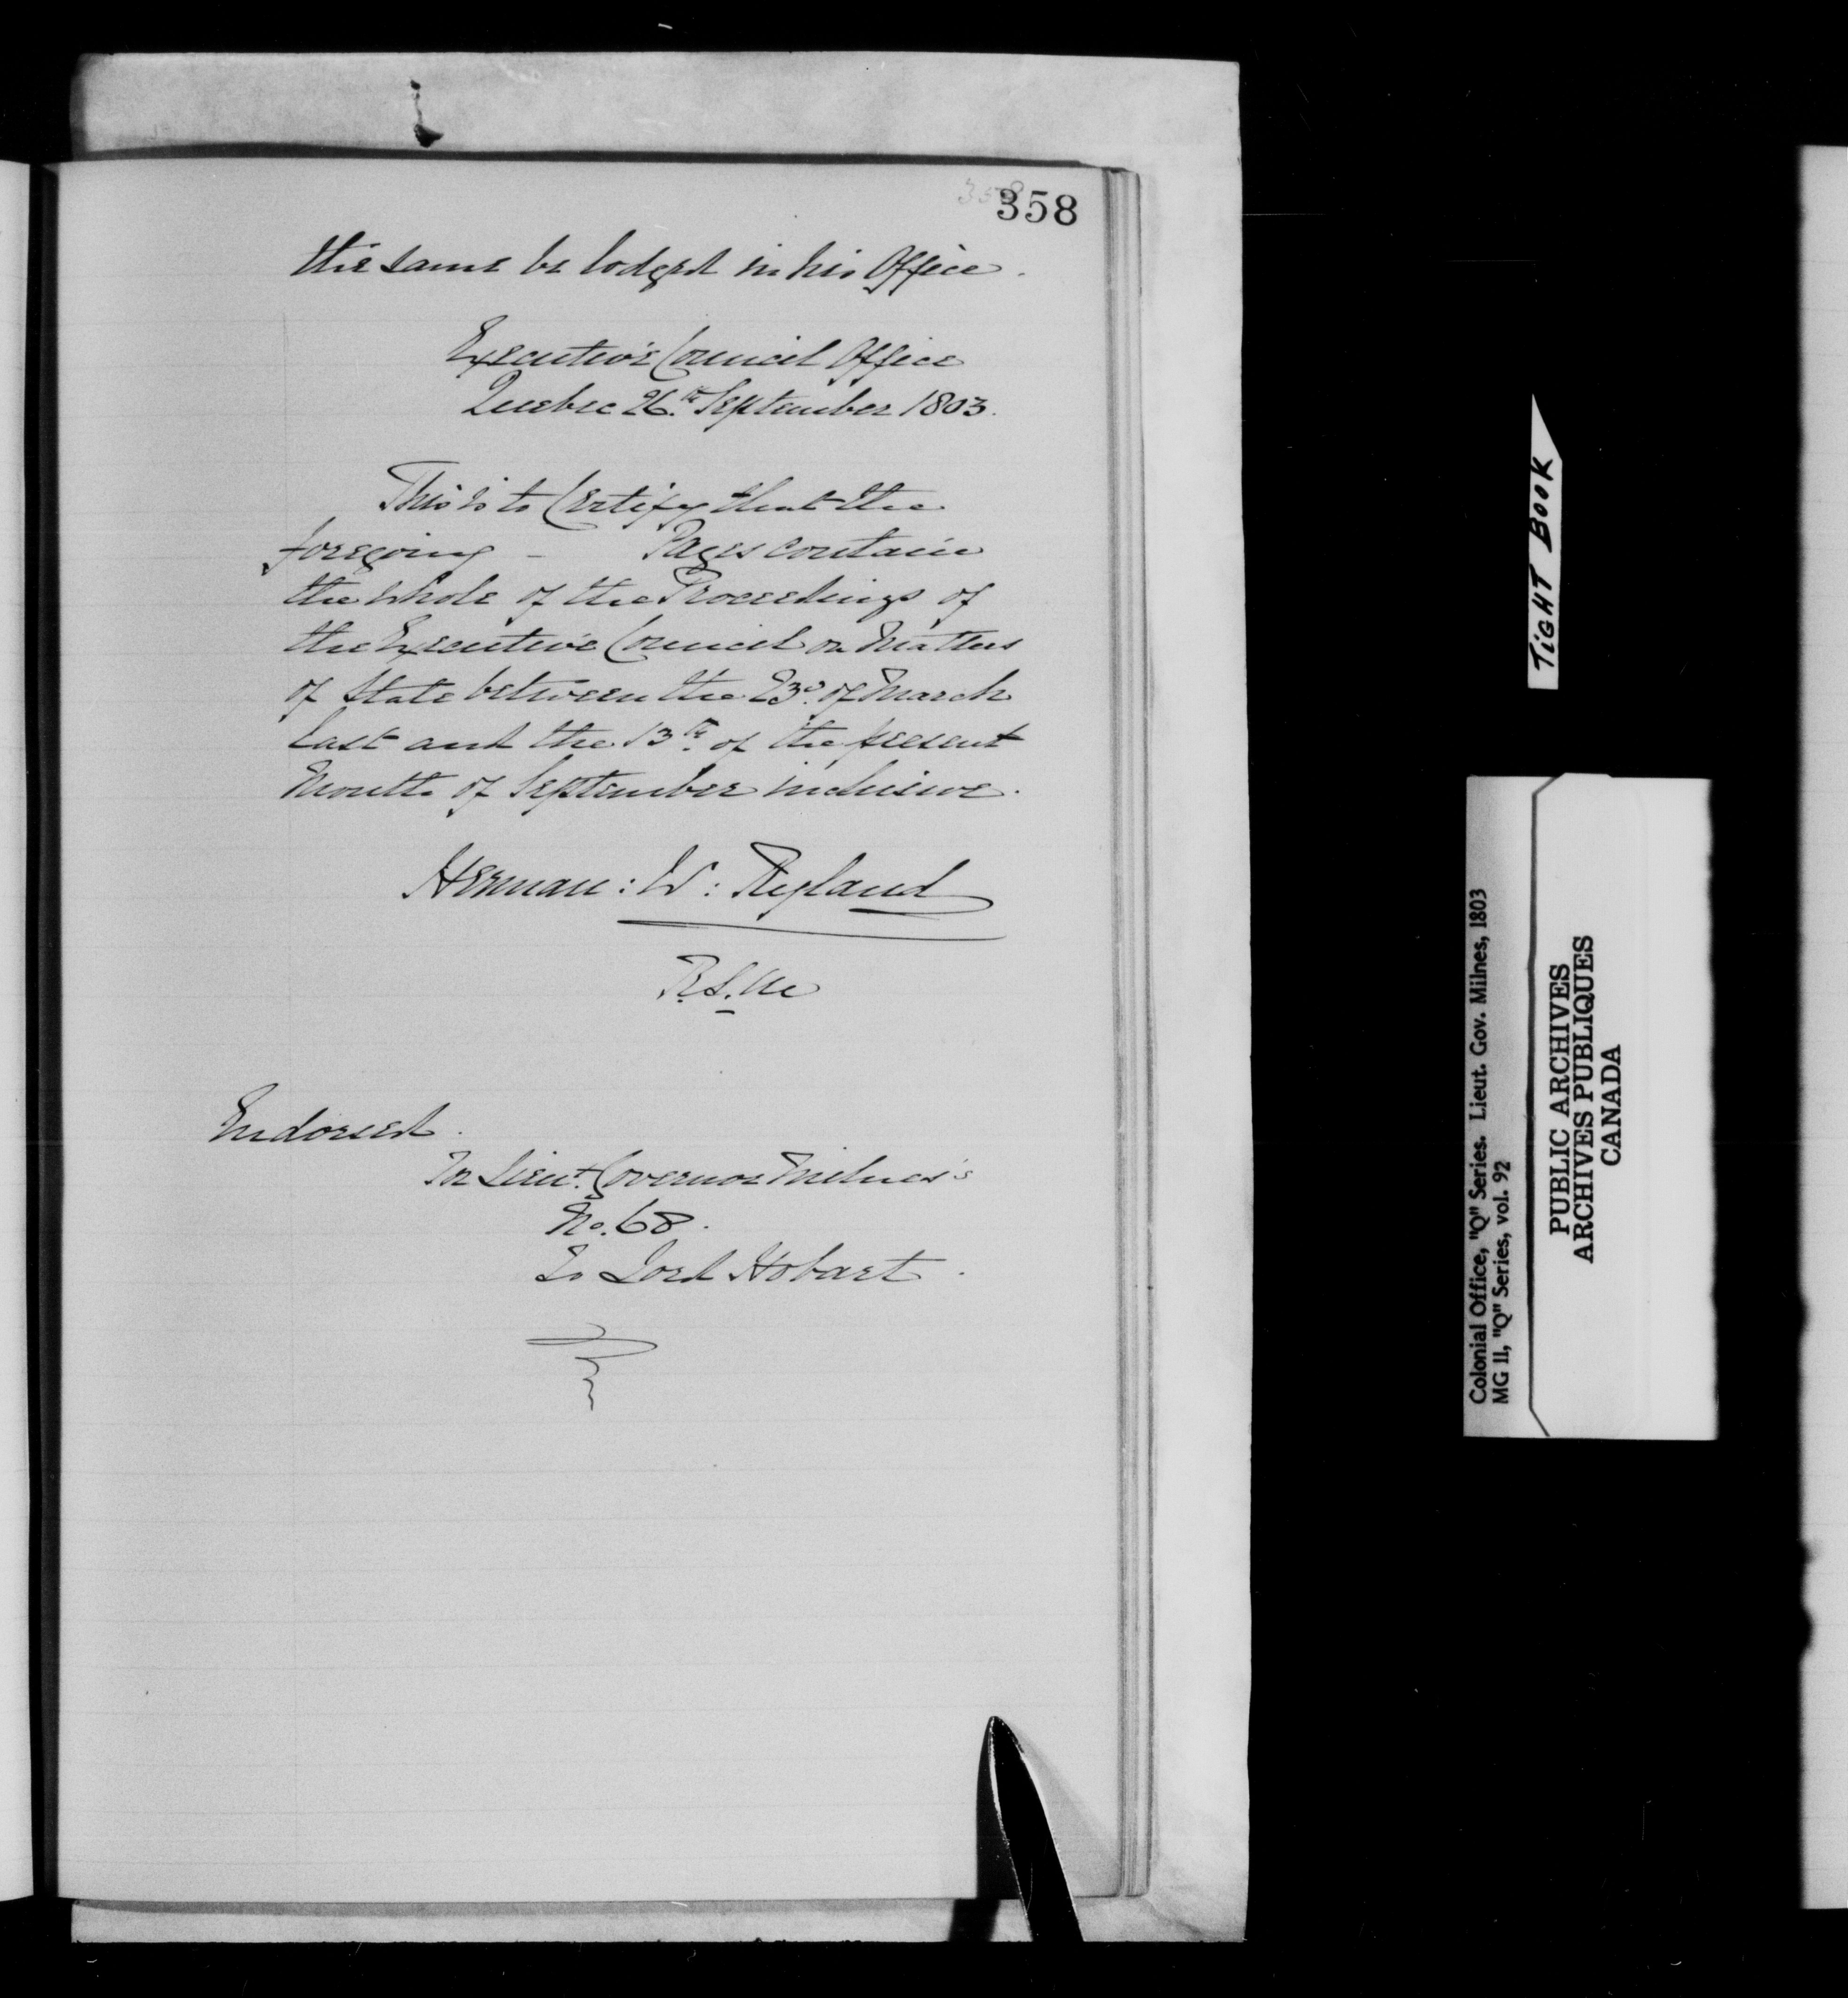 358
358
the same be lodged in his Office.
Executive Council Office
Quebec 26.th September 1803.
This is to Certify that the
foregoing – Pages contain
the whole of the Proceedings of
the Executive Council on Matters
of State between the 23d. of March
last and the 13th. of the present
Month of September inclusive.
Herman: W: Ryland
R.S.M
Endorsed.
In Lieut. Governor Milnes's
No. 68.
To Lord Hobart.
TIGHT BOOK
Colonial Office, "Q" Series. Lieut. Gov. Milnes, 1803
MG 11, "Q" Series, vol. 92
PUBLIC ARCHIVES
ARCHIVES PUBLIQUES
CANADA